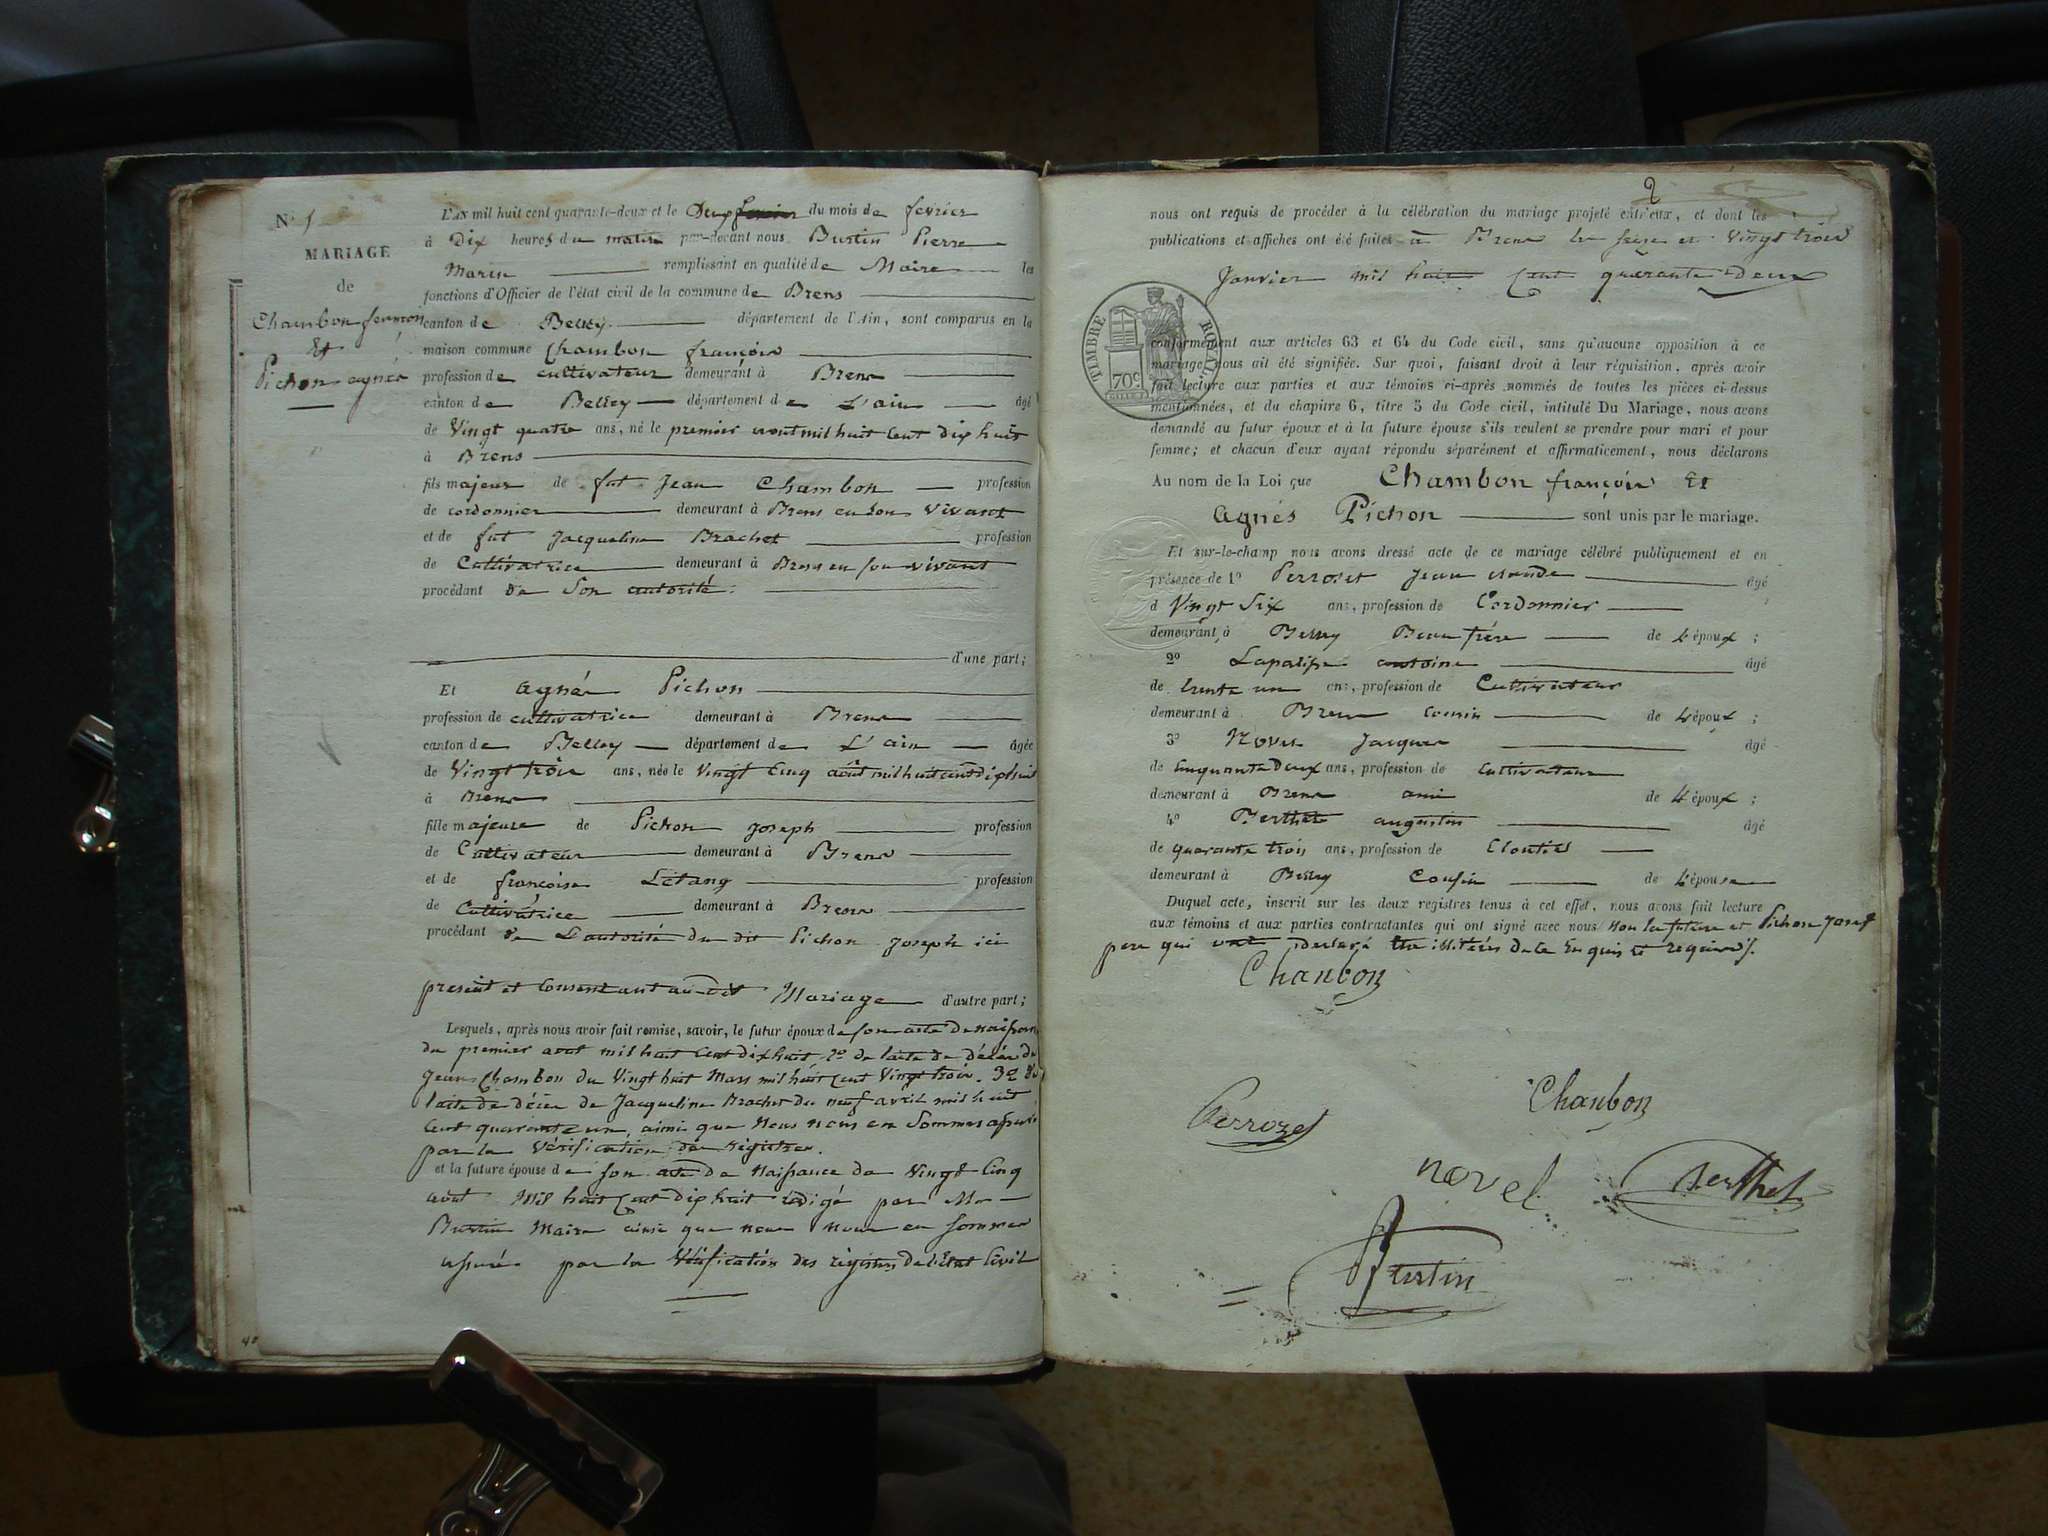 N° 1
MARIAGE
de
Chambon françois
Et
Pichon agnés
L'AN mil huit cent quarante-deux et le Deux du mois de fevrier
à Dix heures du matin par-devant nous Burtin Pierre
Marin remplissant en qualité de Maire les
fonctions d'Officier de l'état civil de la commune de Brens
canton de Belley département de l'Ain, sont comparus en la
maison commune Chambon françois
profession de cultivateur demeurant à Brens
canton de Belley département de L'ain âgé
de Vingt quatre ans, né le premier aout mil huit Cent dix huit
à Brens
fils majeur de fut Jean Chambon profession
de cordonnier demeurant à Brens en son vivant
et de fut Jacqueline Brachet profession
de Cultivatrice demeurant à Brens en son vivant
procédant de Son autorité.
d'une part;
Et agnés Pichon
profession de cultivatrice demeurant à Brens
canton de Belley département de L'ain âgée
de Vingt trois ans, née le Vingt Cinq août mil huit cent dix huit
à Brens
fille majeure de Pichon Joseph profession
de Cultivateur demeurant à Brens
et de françoise Létang profession
de Cultivatrice demeurant à Brens
procédant de L'autorité du dit Pichon Joseph ici
présent et Consentant au-dit Mariage d'autre part;
Lesquels, après nous avoir fait remise, savoir, le futur époux de son acte de naissance
du premier aout mil huit Cent dix huit 2° de l'acte de décès de
Jean Chambon du Vingt huit Mars mil huit Cent Vingt trois. 3° de
l'acte de décès de Jacqueline Brachet du neuf avril mil huit
Cent quarante un, ainsi que Nous nous en Sommes assurés
par la Vérification des régistres.
et la future épouse de son acte de Naissance du Vingt Cinq
aout Mil huit Cent dix huit rédigé par Mr
Burtin Maire ainsi que nous nous en Sommes
assurés par la Vérification des régistres de l'Etat Civil
2
nous ont requis de procéder à la célébration du mariage projeté entr'eux, et dont les
publications et affiches ont été faites à Brens les seize et Vingt trois
Janvier mil huit Cent quarante Deux
TIMBRE ROYAL
70c
conformément aux articles 63 et 64 du Code civil, sans qu'aucune opposition à ce
mariage nous ait été signifiée. Sur quoi, faisant droit à leur réquisition, après avoir
fait lecture aux parties et aux témoins ci-après nommés de toutes les pièces ci-dessus
mentionnées, et du chapitre 6, titre 5 du Code civil, intitulé Du Mariage, nous avons
demandé au futur époux et à la future épouse s'ils veulent se prendre pour mari et pour
femme; et chacun d'eux ayant répondu séparément et affirmativement, nous déclarons
Au nom de la Loi que Chambon françois Et
Agnés Pichon sont unis par le mariage.
Et sur-le-champ nous avons dressé acte de ce mariage célébré publiquement et en
présence de 1° Perroset Jean claude âgé
d Vingt Six ans, profession de Cordonnier
demeurant à Belley Beau frére de l'époux;
2° Lapalisse antoine âgé
de trente un ans, profession de Cultivateur
demeurant à Brens Cousin de l'époux;
3° Novel Jacques âgé
de Cinquante Deux ans, profession de Cultivateur
demeurant à Brens ami de l'époux;
4° Berthet augustin âgé
de quarante trois ans, profession de Cloutier
demeurant à Belley Cousin de l'épouse
Duquel acte, inscrit sur les deux registres tenus à cet effet, nous avons fait lecture
aux témoins et aux parties contractantes qui ont signé avec nous Non la future et Pichon Josef
pere qui ont déclaré être illitérés de ce Enquis et requis.
Chanbon
Perrozet
Chanbon
novel
Berthet
Burtin